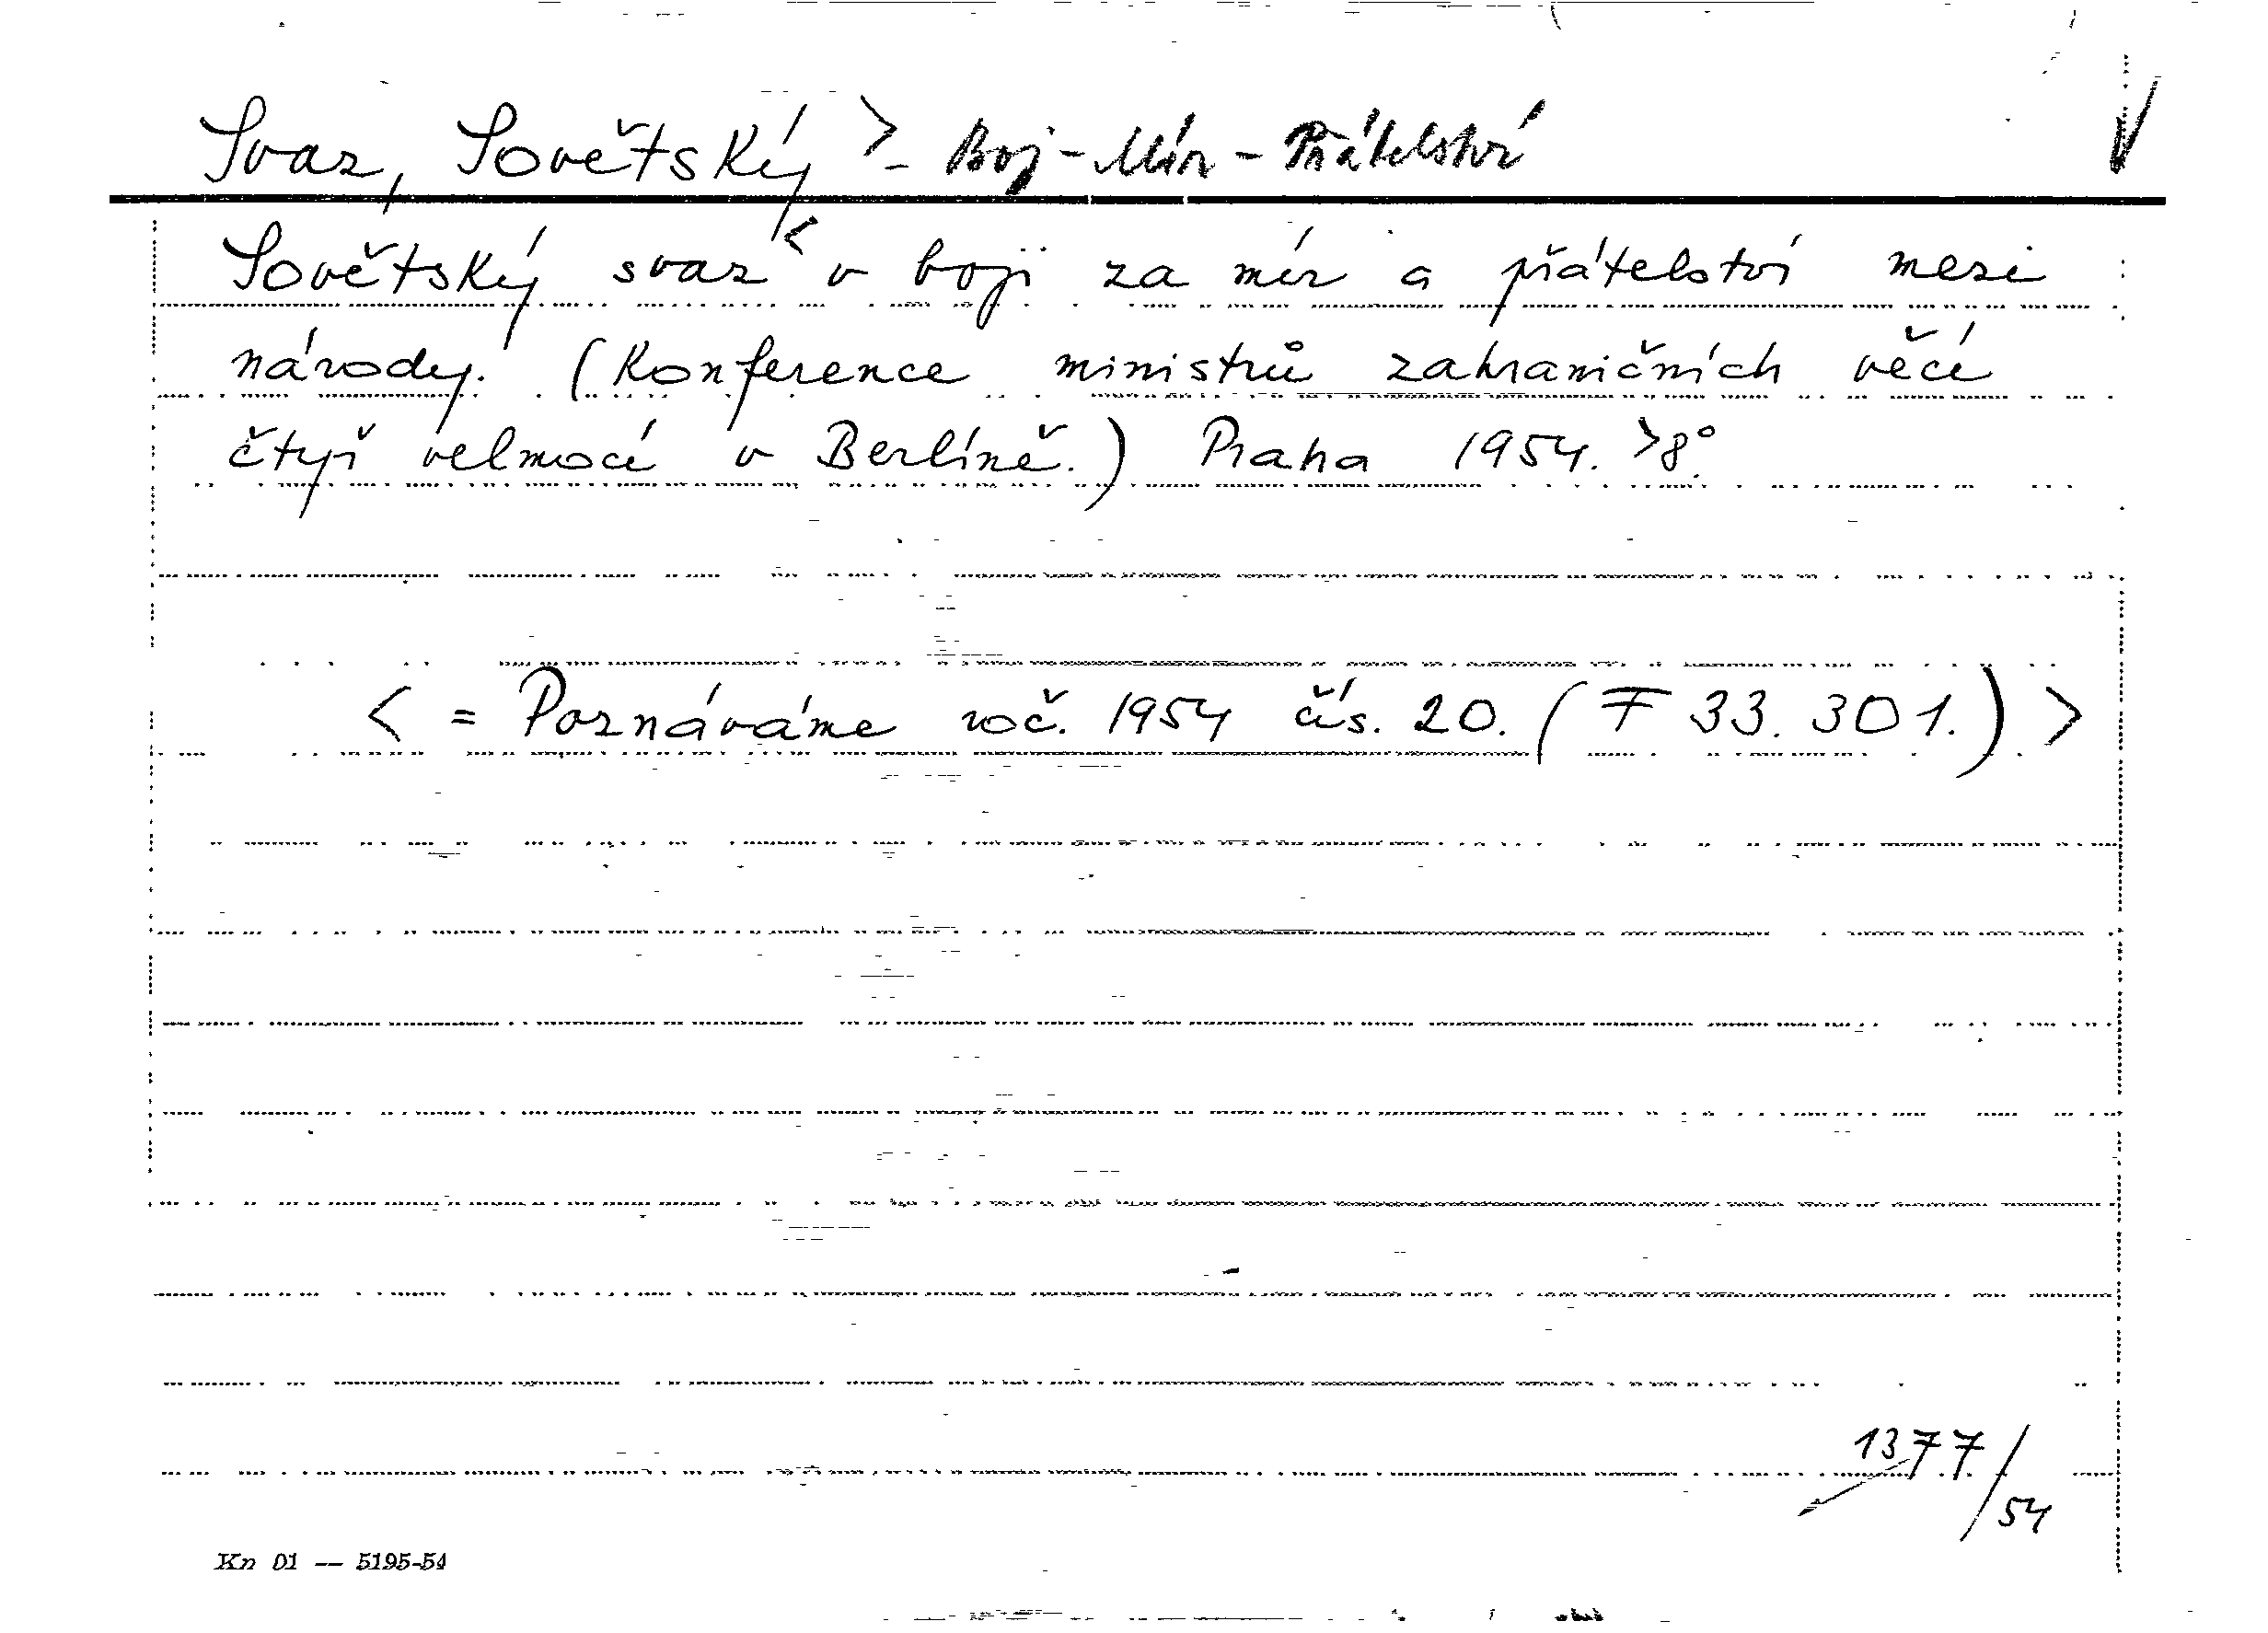 Svaz, Sovětský > - Boj - Mír - Přátelství
Sovětský svaz < v boji za mír a přátelství mezi
národy. (Konference ministrů zahraničních věcí
čtyř velmocí v Berlíně.) Praha 1954. >8°.
< = Poznáváme roč. 1954 čís. 20. (F 33.301.) >
1377/54
Kn 01 — 5195-54